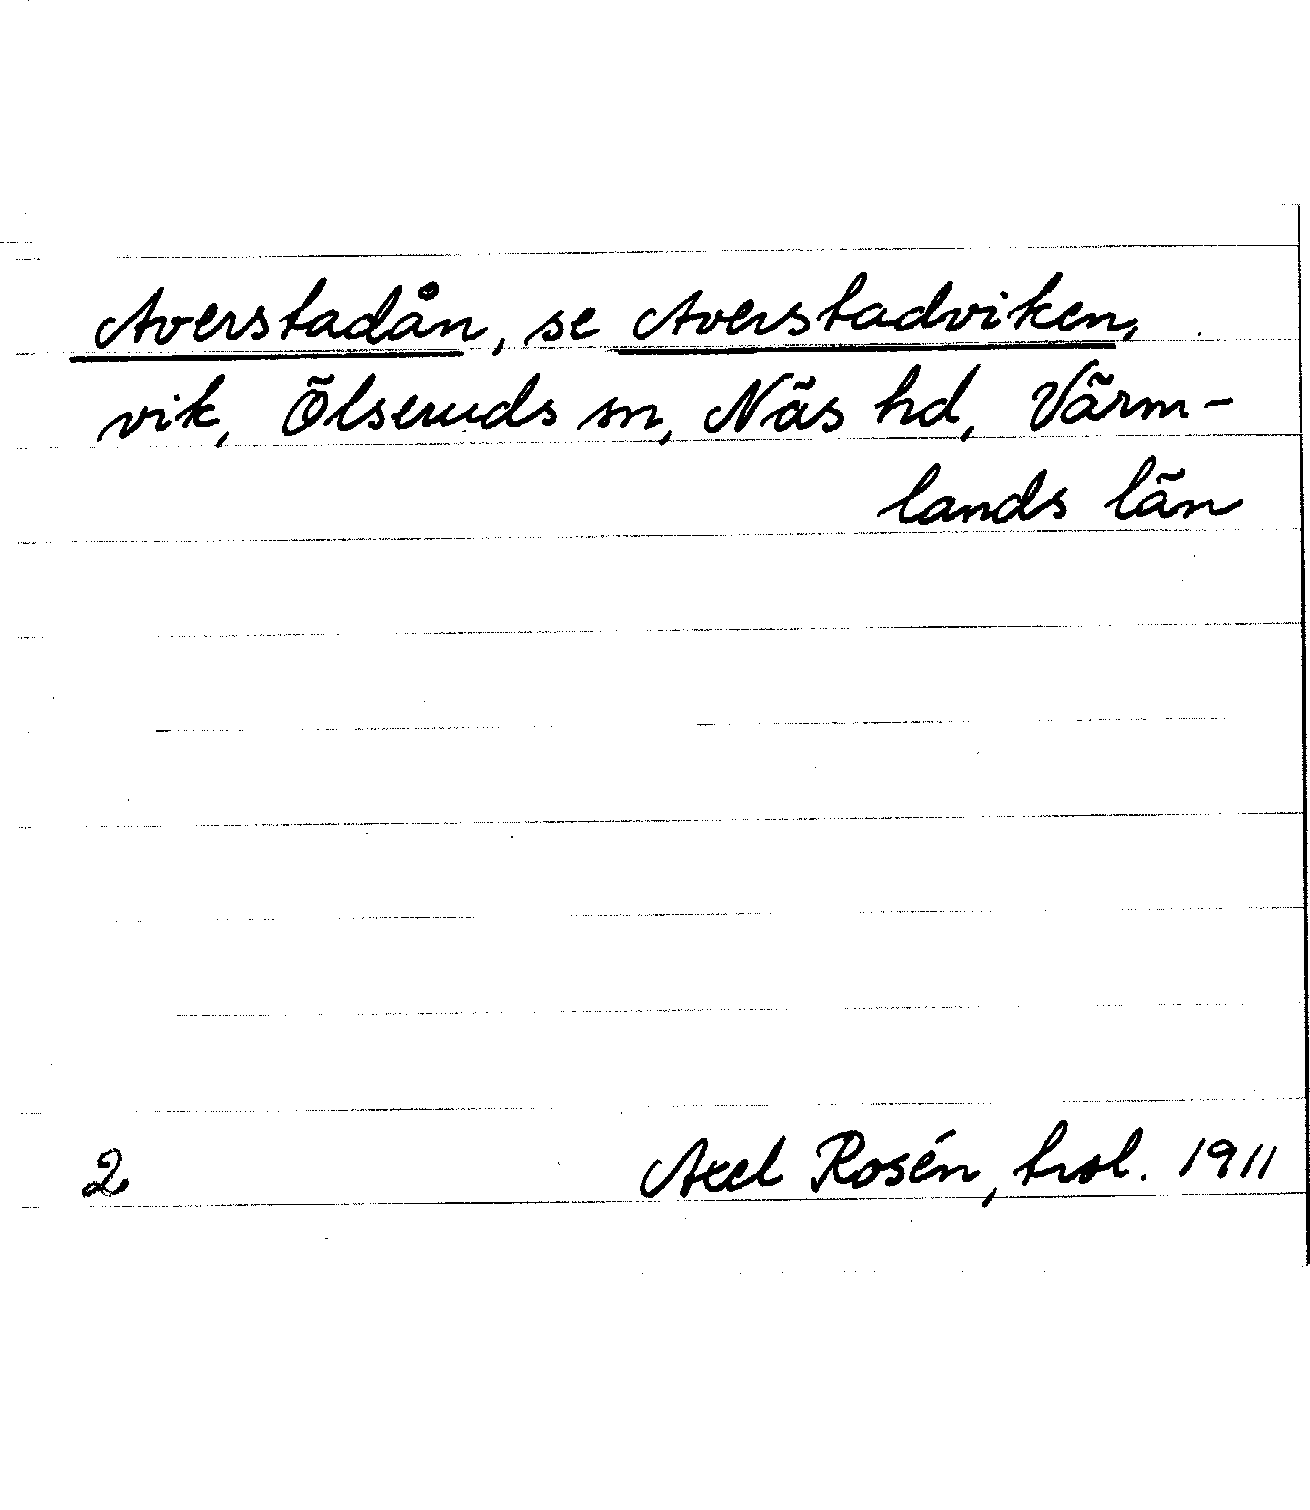 Averstadån, se Averstadviken,
vik, Ölseruds sn, Näs hd, Värm-
lands län
2 Axel Rosén, trol. 1911